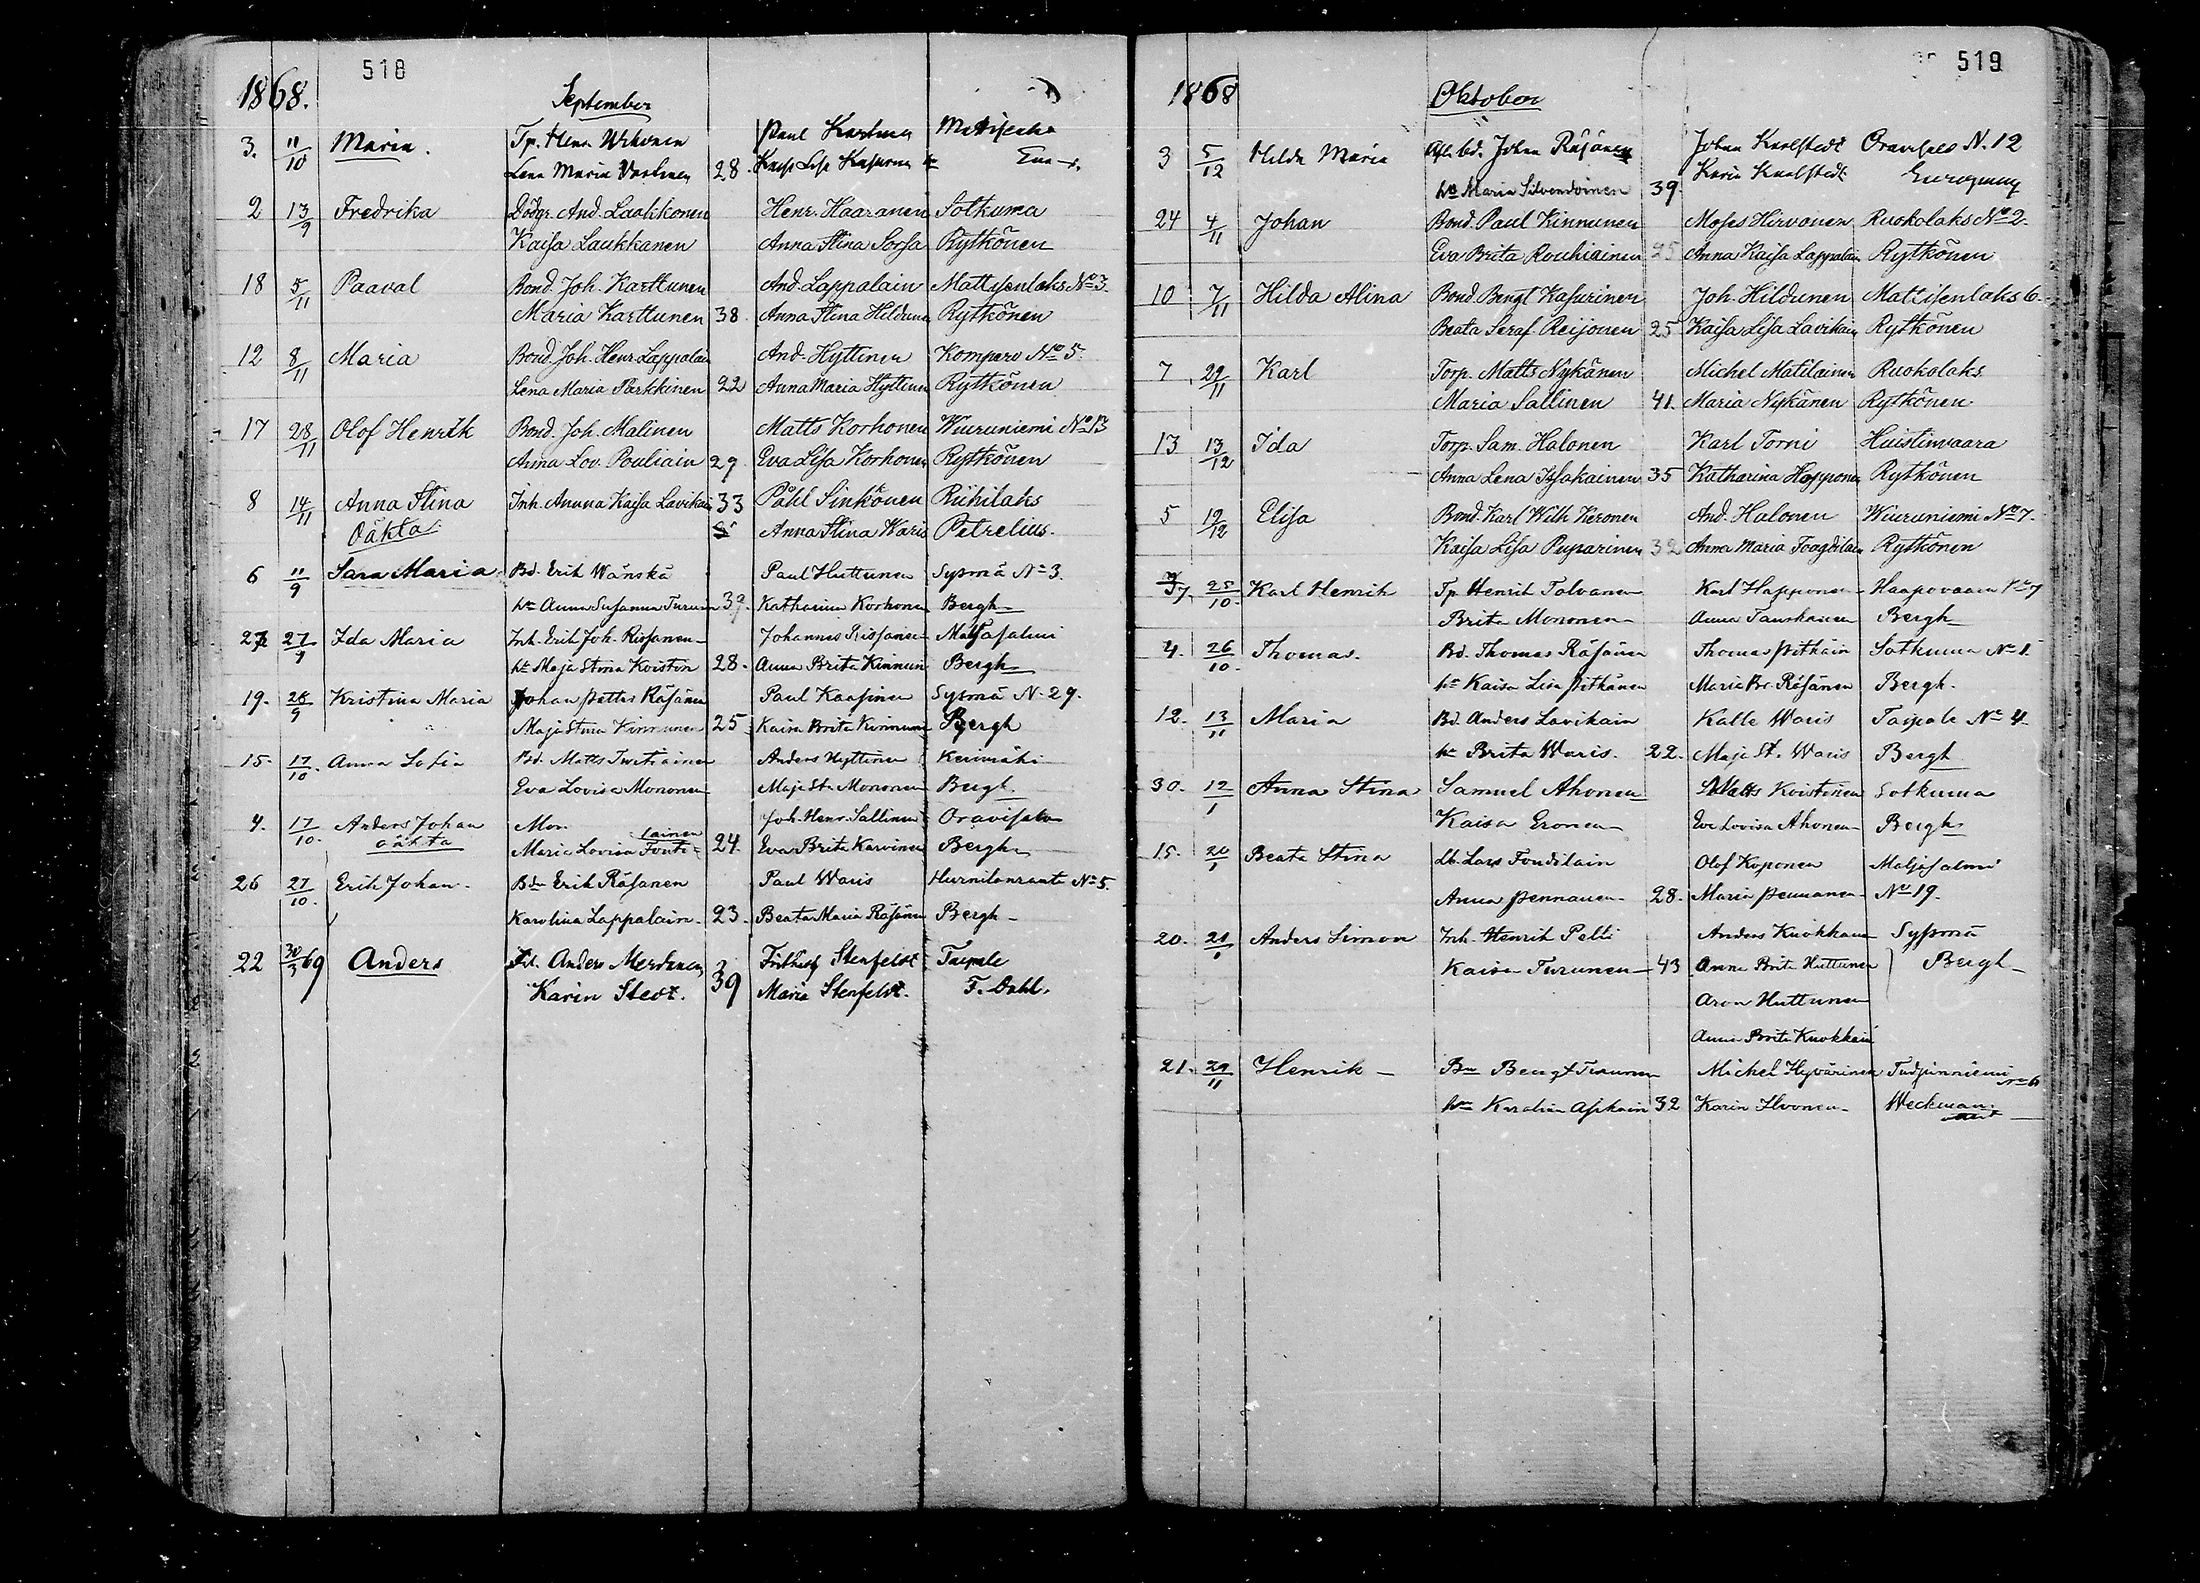 518
1868. September
3. 11/10 Maria. Tp. Henr Paul Mattisenlaks
Lena Maria 28. Lisa
2 13/9 Fredrika Dödgr. And. Laukkonen Henr. Haaranen Sotkuma
Kaisa Laukkanen Anna Stina Sorsa Rytkönen
18 5/11 Paaval Bond. Joh. Karttunen And. Lappalain Mattisenlaks No 3.
Maria Karttunen 38. Anna Stina Hildunen Rytkönen
12 8/11 Maria Bond. Joh. Henr. Lappalain And. Hyttinen Kompero No 5.
Lena Maria Parkkinen 22 Anna Maria Hyttinen Rytkönen
17 28/11 Olof Henrik Bond. Joh. Malinen Matts Korhonen Wiuruniemi No 13
Anna Lov. Pouliain 29. Eva Lisa Korhonen Rytkönen
8 14/11 Anna Stina Inh. Anna Kaisa Lavikai 33 Påhl Sinkkonen Riihilaks
Oäkta Anna Stina Waris Petrelius.
6 11/9 Sara Maria Bd. Erik Wänskä Paul Huttunen Sysmä No 3.
hu Anna Susanna Turunen 39. Katharina Korhonen Bergh
23 27/9 Ida Maria Inh. Erik Joh. Rissanen Johannes Rissanen Maljasalmi
hu Maja Stina Koistin 28. Anna Brita Kinnun Bergh
19. 26/9 Kristina Maria Johan Petter Räsänen Paul Kaasinen Sysmä No 29.
Maja Stina Kinnunen 25 Kaisa Brita Kinnunen Bergh
15. 17/10. Anna Sofia Bd. Matts Anders Hyttinen
Eva Lovisa Mononen Maja St. Mononen Bergh.
4. 17/10. Anders Johan Mor. Joh. Henr. Sallinen Oravisalo
oäkta Maria Lovisa Fonti=lainen 24. Eva Brita Karvinen Bergh
26 27/10. Erik Johan. Bdn Erik Räsänen Paul Waris No 5.
Karolina Lappalain. 23. Beata Maria Räsänen Bergh
22 30/3 69 Anders Anders Stenfeldt Taipale
Karin Stedt. 39 Maria Stenfeldt. F. Dahl.
519
1868 Oktober
3 5/12 Hilda Maria Johan Räsänen Johan Karlstedt Oravisalo N. 12
hu Maria Silvendoinen 39. Karin Karlstedt
24 4/11 Johan Bond. Paul Kinnunen Moses Hirvonen Ruokolaks No 2.
Eva Brita Rouhiainen 25 Anna Kaisa Lappalain Rytkönen
10 7/11 Hilda Alina Bond. Bengt Kasurinen Joh. Hildunen Mattisenlaks 6.
Beata Seraf. Reijonen 25 Kaisa Lisa Lavikain Rytkönen
7 29/11 Karl Torp. Matts Nykänen Michel Matilainen Ruokolaks
Maria Sallinen 41. Maria Nykänen Rytkönen
13 13/12 Ida Torp. Sam. Halonen Karl Torni Huistinvaara
Anna Lena Issakainen 35 Katharina Happonen Rytkönen
5 19/12 Elisa Bond. Karl Wilh. Keronen And. Halonen Wiuruniemi No 7.
Kaisa Lisa Puparinen 32 Anna Maria Rytkönen
25/10. Karl Henrik Tp. Henrik Tolvanen Karl Happonen Haapovaara No 7
Brita Mononen Anna Bergh
4. 26/10. Thomas. Bd. Thomas Räsänen Thomas Pitkäin Sotkuma No 1.
hu Kaisa Lisa Pitkänen Maria Br. Räsänen Bergh.
12. 13/11 Maria Bd. Anders Lavikain Kalle Waris Taipale No 4.
hu Brita Waris. 22. Maja St. Waris Bergh
30. 12/1 Anna Stina Samuel Ahonen Matts Koistinen Sotkuma
Kaisa Eronen Eva Lovisa Ahonen Bergh
15. 20/1 Beata Stina Lars Olof Koponen Maljasalmi
Anna Pennanen 28. Maria Pennanen No 19.
20. 21/1 Anders Simon Inh. Henrik Pelli Anders Knokkanen Sysmä
Kaisa Turunen 43 Anna Brita Huttunen Bergh
Aron Huttunen
Anna Brita Knokkain
21. 29/11 Henrik Bn Bengt Turunen Michel Hyvärinen No 6
hu Karolina Asikain 32 Karin Ilvonen Weckman.